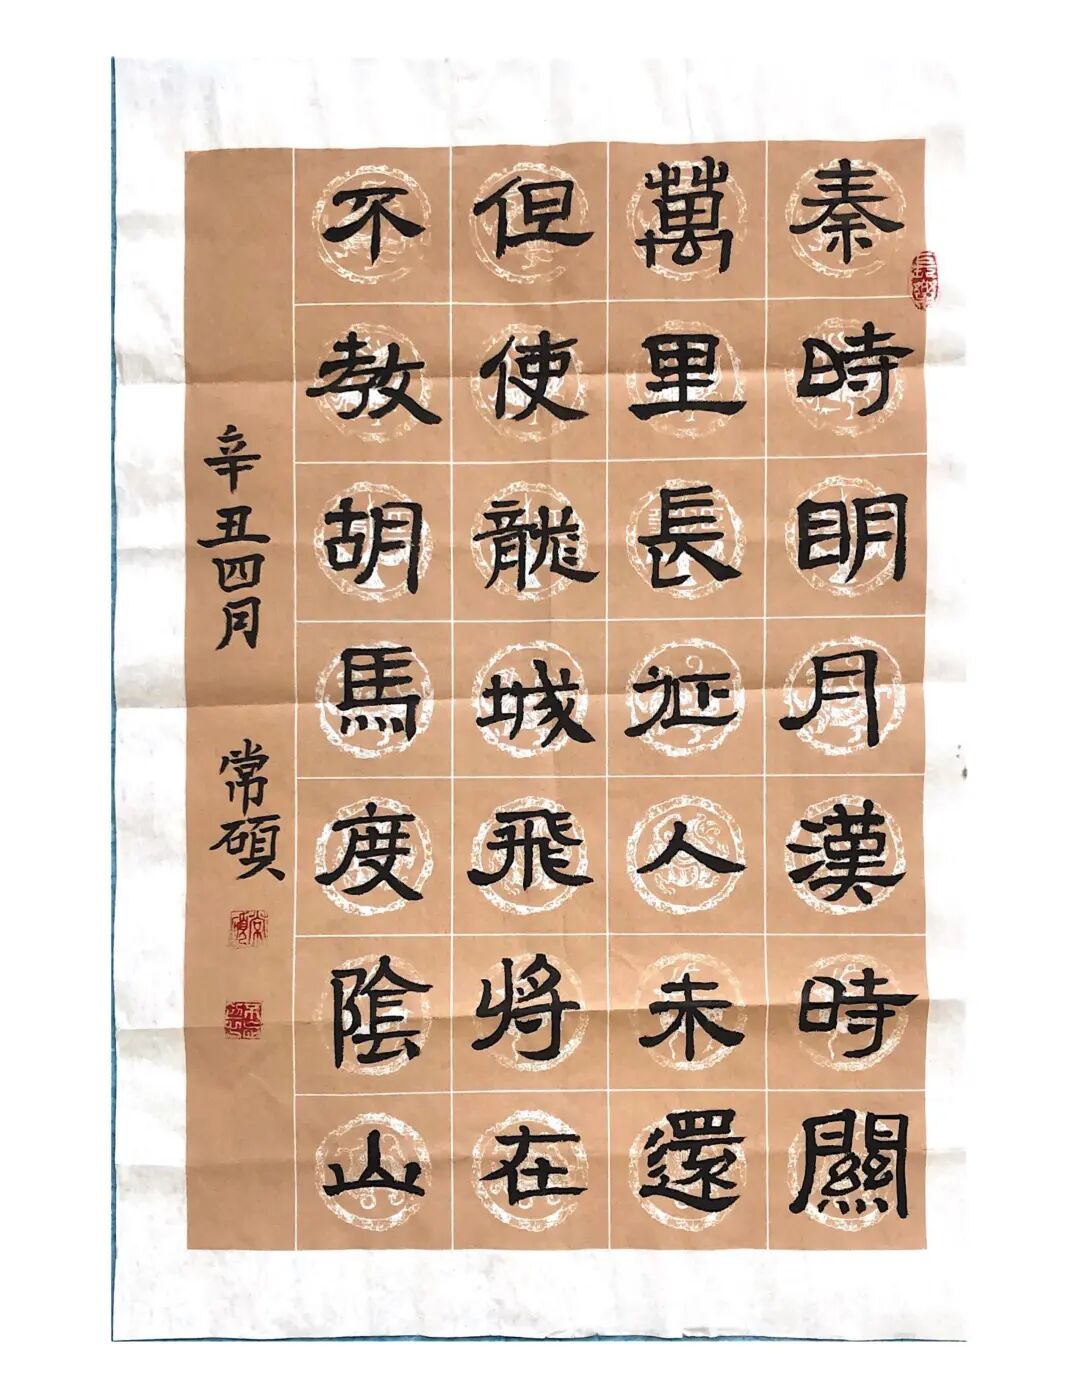 秦時明月漢時關
萬里長征人未還
但使龍城飛將在
不教胡馬度陰山
辛丑四月 常碩
常碩